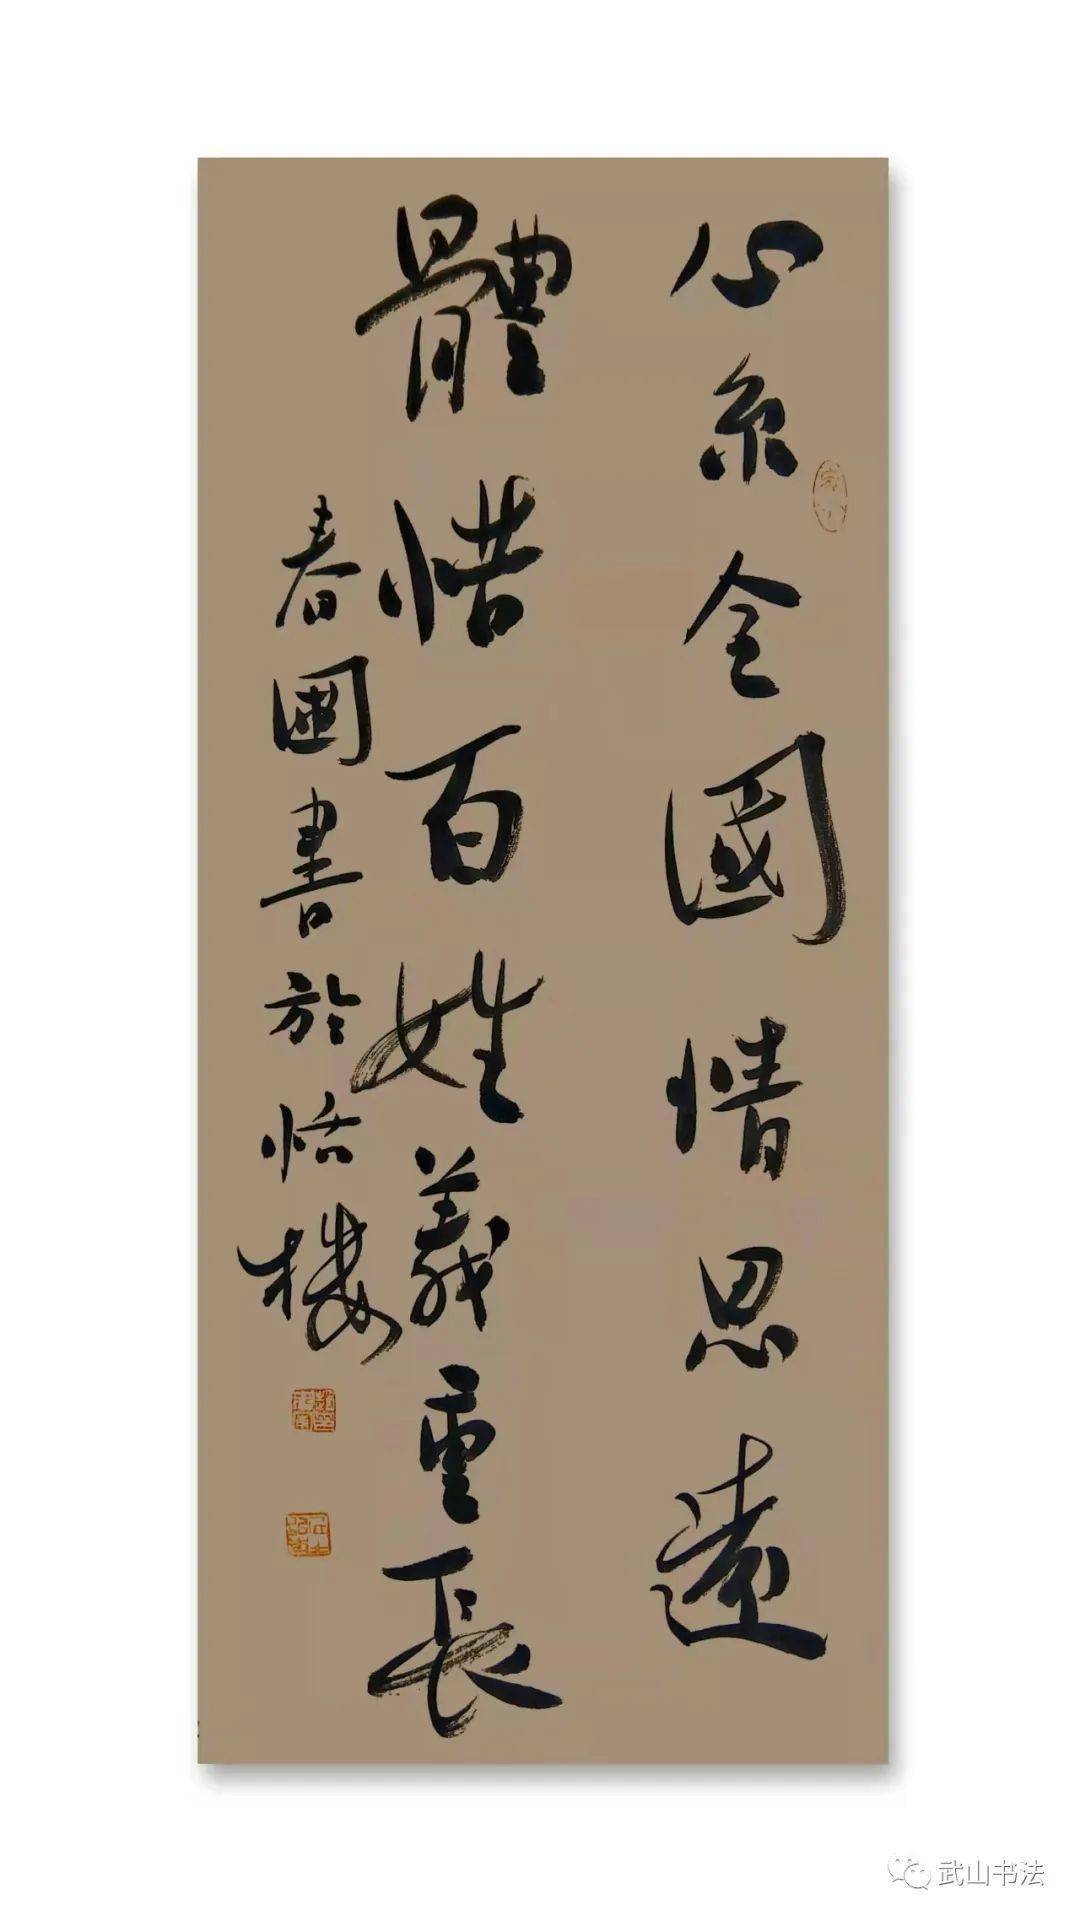 心系全國情思遠
體惜百姓義重長
春圃書於恬樓
武山书法